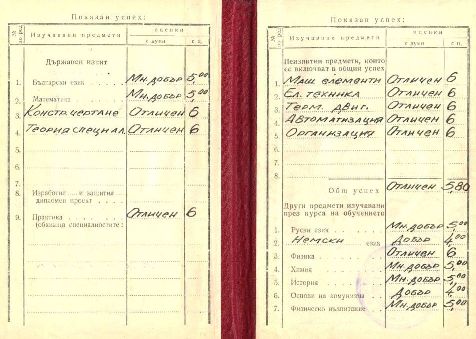 Показан успех:
№ по ред Изучавани предмети оценки
с думи с ц.
Държавен изпит
1. Български език Мн. добър 5,00
2. Математика Мн. добър 5,00
3. Констр. чертане Отличен 6
4. Теория специал. Отличен 6
5.
6.
7.
8. Изработил и защитил
дипломен проект
9. Практика Отличен 6
(обхваща специалностите:
Показан успех:
№ по ред Изучавани предмети оценки
с думи с ц.
Неизпитни предмети, които
се включват в общия успех
1. Маш. елементи Отличен 6
2. Ел. техника Отличен 6
3. Терм. двиг. Отличен 6
4. Автоматизация Отличен 6
5. Организация Отличен 6
6.
7.
8.
Общ успех Отличен 5,80
Други предмети изучавани
през курса на обучението
1. Руски език Мн. добър 5,00
2. Немски език Добър 4,00
3. Физика Отличен 6
4. Химия Мн. добър 5,00
5. История Мн. добър 5,00
6. Основи на комунизма Добър 4,00
7. Физическо възпитание Мн. добър 5,00